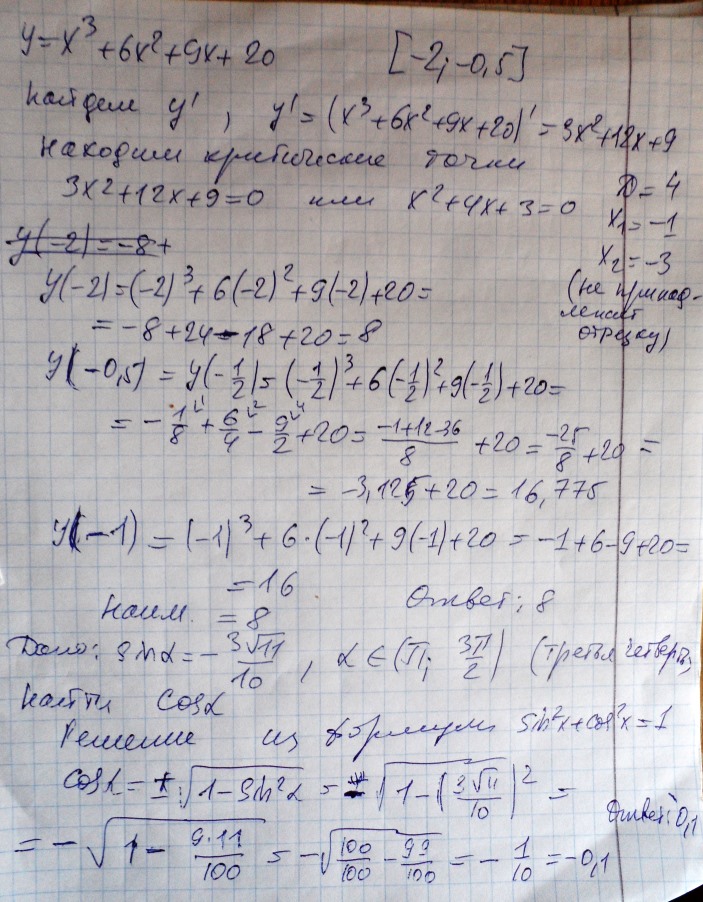 y=x³+6x²+9x+20 [-2; -0,5]
Найдем y', y'=(x³+6x²+9x+20)'=3x²+12x+9
Находим критические точки
3x2+12x+9=0 или x²+4x+3=0
D=4
x₁=-1
x₂=-3
(не принад-
лежит
отрезку)
y(-2)=-8+
y(-2)=(-2)³+6(-2)²+9(-2)+20=
=-8+24-18+20=8
y(-0,5)=y(-1/2)=(-1/2)³+6(-1/2)²+9(-1/2)+20=
=-1/8\1+6/4\2-9/2\4+20=(-1+12-36)/8+20=-25/8+20=
=-3,125+20=16,775
y(-1)=(-1)³+6·(-1)²+9(-1)+20=-1+6-9+20=
=16
Наим. =8 Ответ: 8
Дано: sinα=-3√11/10, α∈(π; 3π/2) (третья четверть)
Найти cosα
Решение из формулы sin²x+cos²x=1
cosα=±√(1-sin²α)=-√(1-(3√11/10)²)=
=-√(1-9·11/100)=-√(100/100-99/100)=-1/10=-0,1
Ответ: -0,1